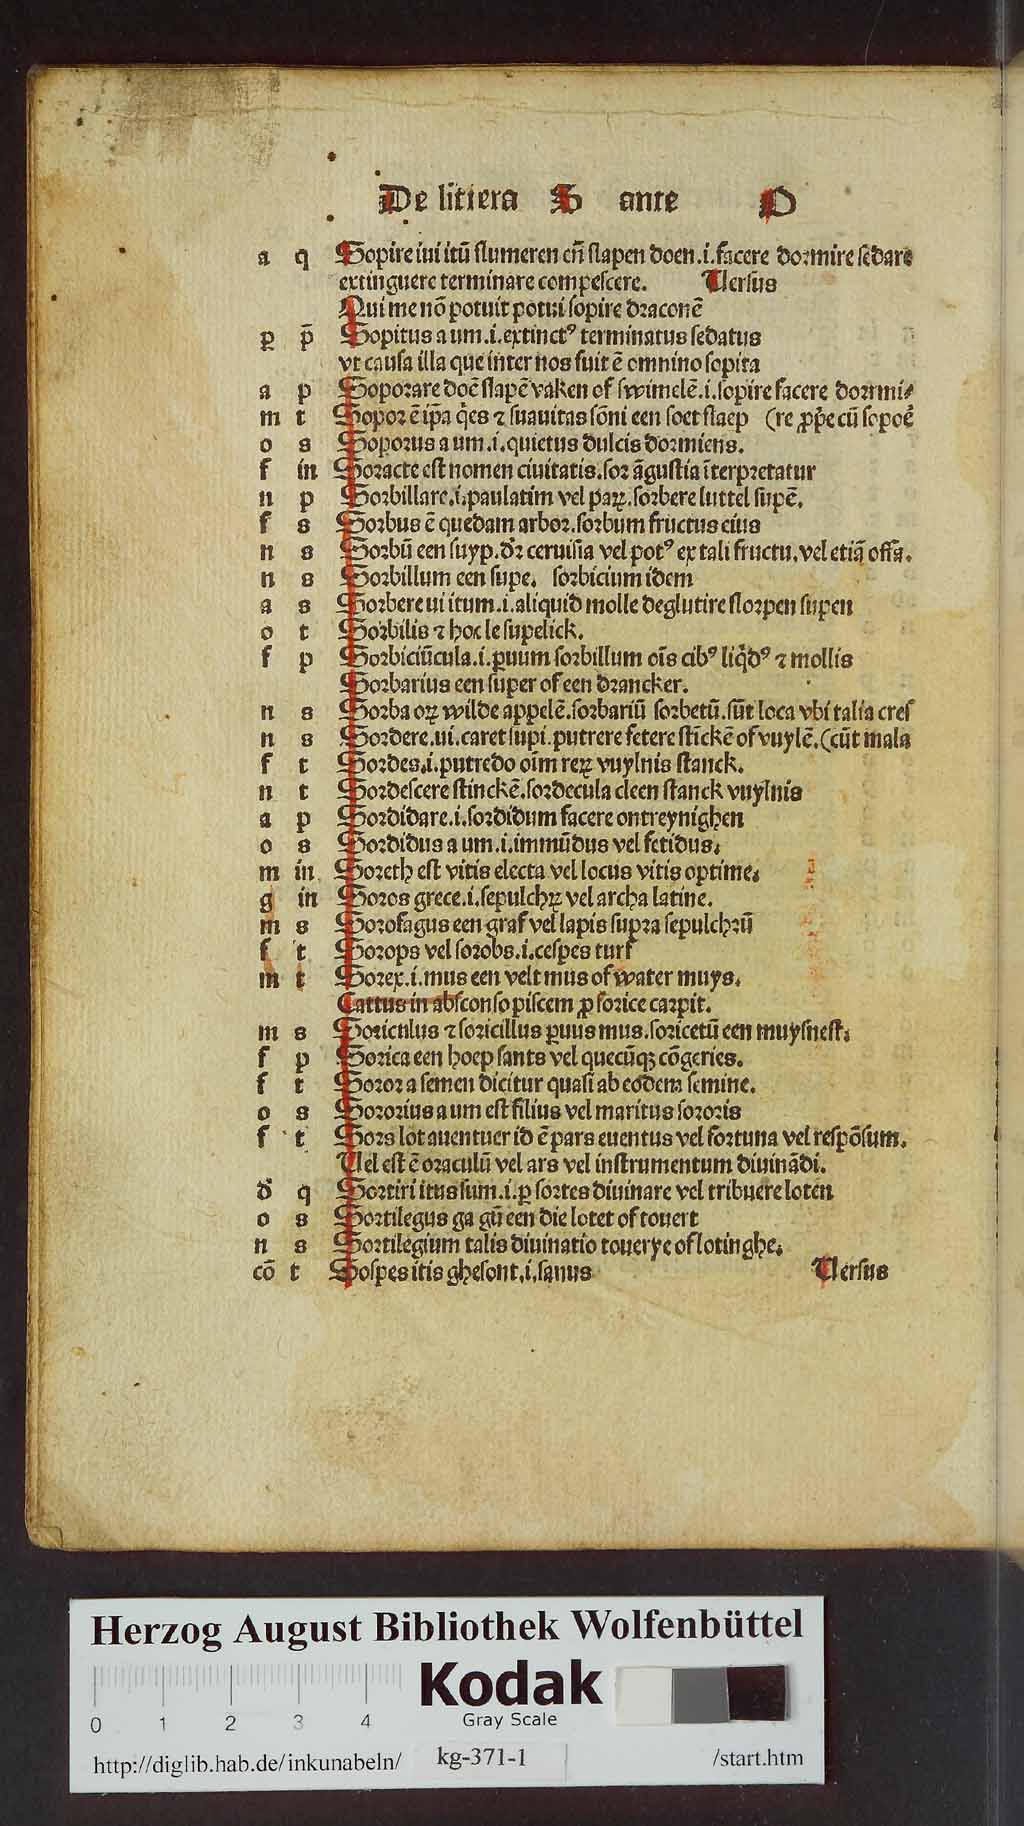 De littera S ante O
a q Sopire iui itū slumeren eñ slapen doen .i. facere dormire sedare
extinguere terminare compescere. Uersus
Qui me nō potuit potui sopire draconē
ꝑ p̄ Sopitus a um .i. extinctꝰ terminatus sedatus
vt causa illa que inter nos fuit ē omnino sopita
a p Soporare doē slapē vaken of swimelē .i. sopire facere dormi⸗
m t Sopor ē ip̄a q̇es ⁊ suauitas sōni een soet slaep (re ꝓp̄e cū sopoē
o s Soporus a um .i. quietus dulcis dormiens.
f in Soracte est nomen ciuitatis. sor āgustia īterpretatur
n p Sorbillare .i. paulatim vel paꝝ. sorbere luttel supē.
f s Sorbus ē quedam arbor. sorbum fructus eius
n s Sorbū een suyp. dr̄ ceruisia vel potꝰ ex tali fructu. vel etiā offa.
n s Sorbillum een supe. sorbicium idem
a s Sorbere ui itum .i. aliquid molle deglutire slorpen supen
o t Sorbilis ⁊ hoc le supelick.
f p Sorbiciūcula .i. ꝑuum sorbillum oīs cibꝰ liq̇dꝰ ⁊ mollis
Sorbarius een super of een drancker.
n s Sorba oꝝ wilde appelē. sorbariū sorbetū. sūt loca vbi talia cres
n s Sordere. ui. caret supi. putrere fetere stickē of vuylē. (cūt mala
f t Sordes .i. putredo oīm reꝝ vuylnis stanck.
n t Sordescere stinckē. sordecula cleen stanck vuylnis
a p Sordidare .i. sordidum facere ontreynighen
o s Sordidus a um .i. immūdus vel fetidus.
m in Soreth est vitis electa vel locus vitis optime.
g in Soros grece .i. sepulchꝝ vel archa latine.
m s Sorofagus een graf vel lapis supra sepulchrū
f t Sorops vel sorobs .i. cespes turf
m t Sorex .i. mus een velt mus of water muys.
Cattus in absconso piscem ꝓ sorice carpit.
m s Soriculus ⁊ soricillus ꝑuus mus. soricetū een muysnest.
f p Sorica een hoep sants vel quecūqꝫ cōgeries.
f t Soror a semen dicitur quasi ab eodem semine.
o s Sororius a um est filius vel maritus sororis
f t Sors lot auentuer id ē pars euentus vel fortuna vel respōsum.
Uel est ē oraculū vel ars vel instrumentum diuināđi.
đ q Sortiri itus sum .i. ꝑ sortes diuinare vel tribuere loten
o s Sortilegus ga gū een die lotet of touert
n s Sortilegium talis diuinatio touerye of lotinghe.
cō t Sospes itis ghesont .i. sanus Uersus
Herzog August Bibliothek Wolfenbüttel
Kodak
Gray Scale
0 1 2 3 4
http://diglib.hab.de/inkunabeln/ kg-371-1 /start.htm